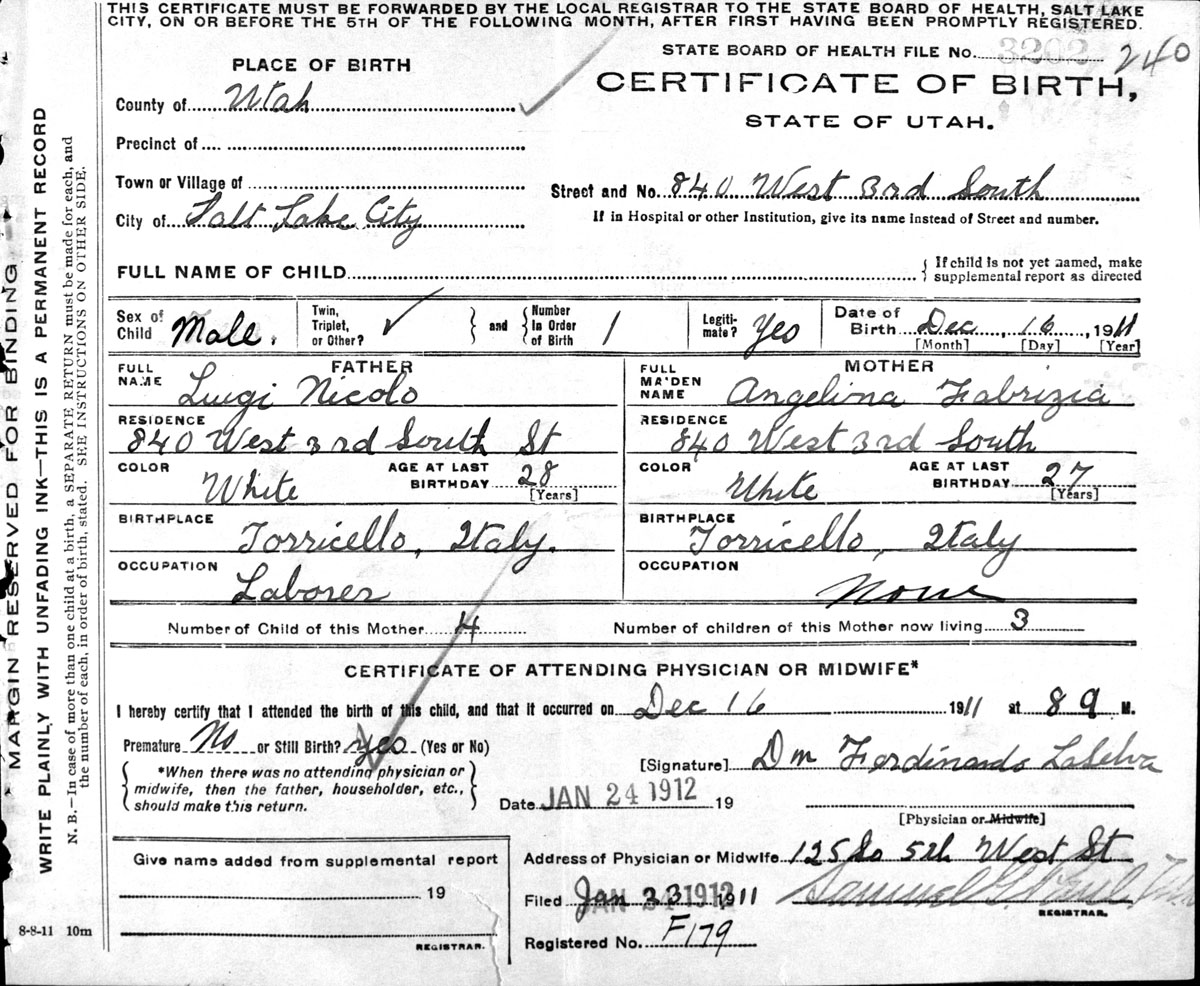 THIS CERTIFICATE MUST BE FORWARDED BY THE LOCAL REGISTRAR TO THE STATE BOARD OF HEALTH, SALT LAKE
CITY, ON OR BEFORE THE 5TH OF THE FOLLOWING MONTH, AFTER FIRST HAVING BEEN PROMPTLY REGISTERED.
MARGIN RESERVED FOR BINDING
WRITE PLAINLY, WITH UNFADING INK—THIS IS A PERMANENT RECORD
N. B.—In case of more than one child at a birth, a SEPARATE RETURN must be made for each, and
the number of each, in order of birth, stated. SEE INSTRUCTIONS ON OTHER SIDE.
STATE BOARD OF HEALTH FILE No. 3202 240
PLACE OF BIRTH
CERTIFICATE OF BIRTH,
STATE OF UTAH.
County of Utah
Precinct of
Town or Village of
City of Salt Lake City
Street and No. 840 West 3rd South
If in Hospital or other Institution, give its name instead of Street and number.
FULL NAME OF CHILD
If child is not yet named, make
supplemental report as directed
Sex of Child Male.
Twin, Triplet, or Other?
and
Number In Order of Birth 1
Legiti- mate? Yes
Date of Birth Dec, 16, 1911
[Month] [Day] [Year]
FATHER
FULL NAME Luigi Nicolo
RESIDENCE
840 West 3rd South St
COLOR White
AGE AT LAST BIRTHDAY 28
[Years]
BIRTHPLACE
Torricello, Italy.
OCCUPATION
Laborer
MOTHER
FULL MAIDEN NAME Angelina Fabrizia
RESIDENCE
840 West 3rd South
COLOR White
AGE AT LAST BIRTHDAY 27
[Years]
BIRTHPLACE
Torricello, Italy
OCCUPATION
None
Number of Child of this Mother 4
Number of children of this Mother now living 3
CERTIFICATE OF ATTENDING PHYSICIAN OR MIDWIFE*
I hereby certify that I attended the birth of this child, and that it occurred on Dec 16 1911 at 8 9 M.
Premature No or Still Birth? Yes (Yes or No)
*When there was no attending physician or
midwife, then the father, householder, etc.,
should make this return.
[Signature] Dm Ferdinando LaSelva
Date JAN 24 1912 19
[Physician or Midwife]
Give name added from supplemental report
19
REGISTRAR.
Address of Physician or Midwife 125 So 5th West St
Filed Jan 23 1912 1911
REGISTRAR.
Registered No. F179
8-8-11 10m